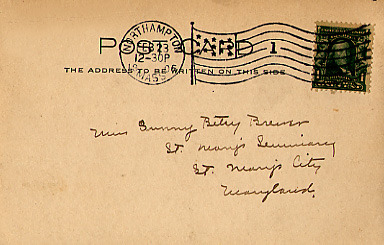 POST CARD 1
NORTHAMPTON
FEB 23
12-30P
MASS.
THE ADDRESS TO BE WRITTEN ON THIS SIDE
Miss Bunny Betsy Brewer
St. Mary's Seminary
St. Mary's City
Maryland.